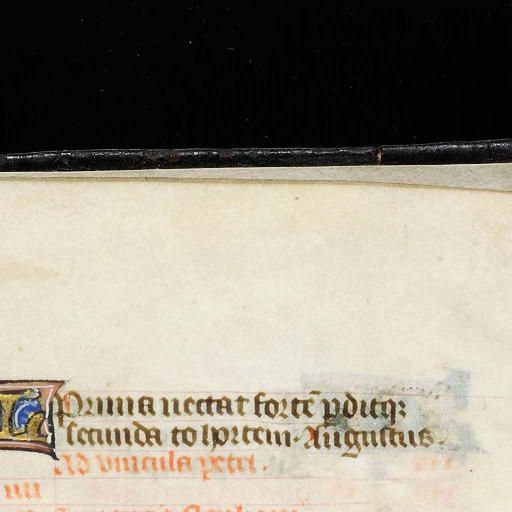 Prima nectat fortē pditq;
secunda cohortem. Augustus.
Ad vincula petri.
iiii